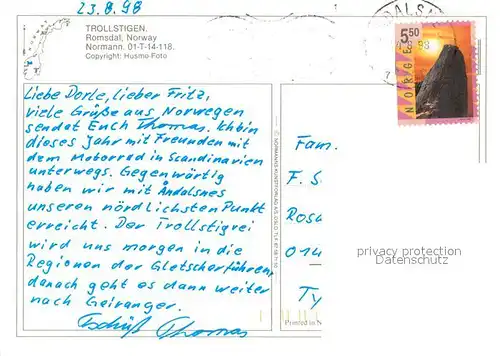 23.8.98
TROLLSTIGEN.
Romsdal, Norway
Normann. 01-T-14-118.
Copyright: Husmo-Foto
Liebe Dorle, lieber Fritz,
viele Grüße aus Norwegen
sendet Euch Thomas. Ich bin
dieses Jahr mit Freunden mit
dem Motorrad in Scandinavien
unterwegs. Gegenwärtig
haben wir mit Åndalsnes
unseren nördlichsten Punkt
erreicht. Der Trollstigrei
wird uns morgen in die
Regionen der Gletscher führen,
danach geht es dann weiter
nach Geiranger.
Tschüß Thomas
NORGE
5,50
Fam.
F. S
Rosa
014
Ty
privacy protection
Datenschutz
Printed in N